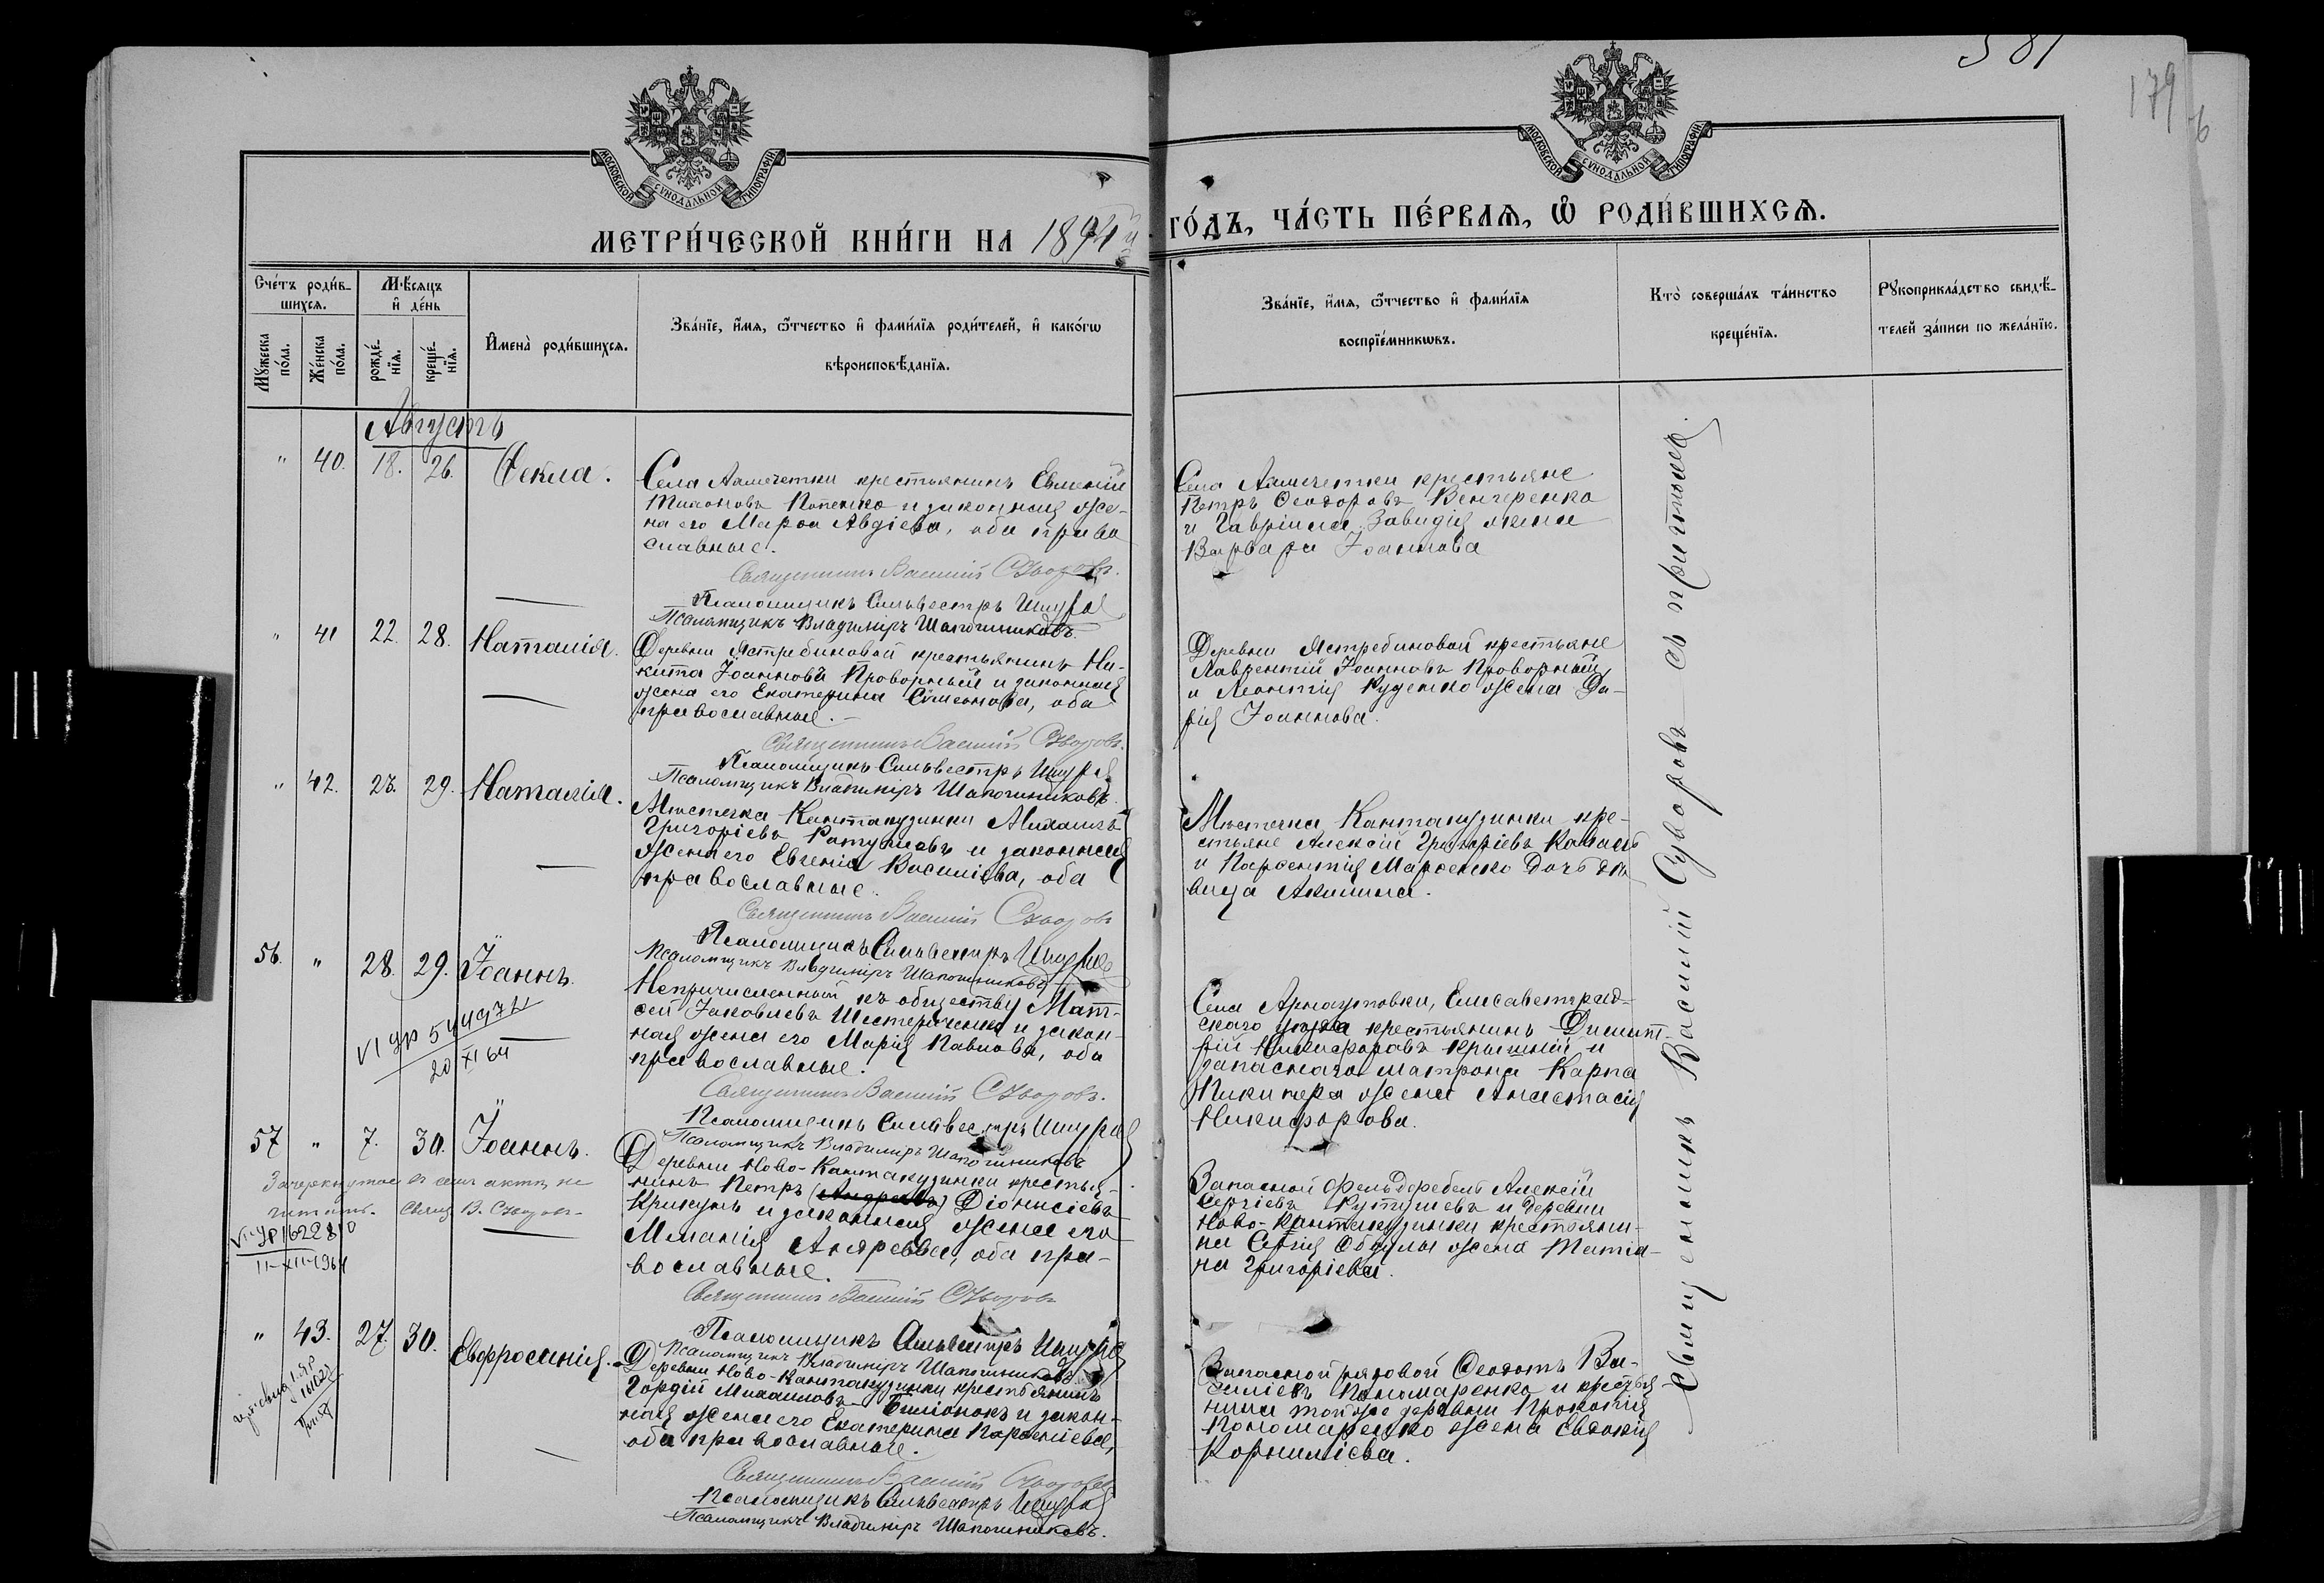 581
179
6
МОСКОВСКОЙ СѴНОДАЛЬНОЙ ТИПОГРАФІИ
МОСКОВСКОЙ СѴНОДАЛЬНОЙ ТИПОГРАФІИ
МЕТРИ́ЧЕСКОЙ КНИ́ГИ НА 1894й
ГО́ДЪ, ЧА́СТЬ ПЕ́РВАЯ, Ѿ РОДИ́ВШИХСЯ.
Сче́тъ роди́в-
шихся.
Мѣ́сяцъ
и҆ де́нь
Мꙋ́жеска по́ла.
Же́нска по́ла.
рожде́-нїя.
креще́-нїя.
И҆мена̀ роди́вшихся.
Зва́нїе, и҆́мя, ѻ҆́тчество и҆ фами́лїя роди́телей, и҆ како́гѡ
вѣроисповѣ́данїя.
Зва́нїе, и҆́мя, ѻ҆́тчество и҆ фами́лїя
воспрїе́мникѡвъ.
Кто̀ соверша́лъ та́инство
креще́нїя.
Рꙋкоприкла́дство свидѣ́-
телей за́писи по жела́нїю.
Августъ
" 40. 18. 26. Ѳекла.
Села Аамчетки крестьянинъ Евменій
Тихоновъ Попенко и законная же-
на его Марѳа Авдіева, оба право
славные.
Священникъ Василій Суворовъ.
Псаломщикъ Сильвестръ
Псаломщикъ Владиміръ Шапошниковъ
Села Аамчетки крестьяне
Петръ Ѳеодоровъ Венгеренко
и Гавріила Завидія жена
Варвара Іоаннова
" 41 22. 28. Наталія.
Деревни Ястребиновой крестьянинъ Ни-
кита Іоанновъ Проворный и законная
жена его Екатерина Сѵмеонова, оба
православные.
Священникъ Василій Суворовъ.
Псаломщикъ Сильвестръ
Псаломщикъ Владиміръ Шапошниковъ
Деревни Ястребиновой крестьяне
Лаврентій Іоанновъ Проворный
и Леонтія Куденко жена Да-
рія Іоаннова.
" 42. 23. 29. Наталія.
Мѣстечка Кантакузинки Михаилъ
Григоріевъ Ратушевъ и законная
жена его Евгенія Василіева, оба
православные.
Священникъ Василій Суворовъ
Псаломщикъ Сильвестръ
Псаломщикъ Владиміръ Шапошниковъ
Мѣстечка Кантакузинки кре-
стьяне Алексій Григоріевъ Коваль
и Парѳентія Марѳенко дочь дѣ
вица Акилина.
56. " 28. 29. Іоаннъ.
Непричисленный къ обществу Мат-
ѳей Іаковлевъ Шестериченко и закон-
ная жена его Марія Павлова, оба
православные.
Священникъ Василій Суворовъ.
Псаломщикъ Сильвестръ
Псаломщикъ Владиміръ Шапошниковъ
VI УР 544974
20 XI 64
Села Арнаутовки, Елисаветград-
скаго уѣзда крестьянинъ Димит-
рій Никифоровъ Крышній и
запаснаго матроса Карпа
Пикинера жена Анастасія
Никифорова.
57 " 7. 30. Іоаннъ.
Деревни Ново-Кантакузинки крестья-
нинъ Петръ (Андреевъ) Діонисіевъ
Крикунъ и законная жена его
Меланія Андреева, оба пра-
вославные.
Священникъ Василій Суворовъ
Псаломщикъ Сильвестръ
Псаломщикъ Владиміръ Шапошниковъ
Зачеркнутое въ семъ актѣ не
читать. Свящ. В. Суворовъ
VI-УР 1622810
11-XII-1964
Запасной фельдфебель Алексій
Сергіевъ Кутушевъ и деревни
Ново-Кантакузинки крестьяни-
на Сергія Обдулы жена Татіа-
на Григоріева.
" 43. 27. 30. Евфросинія.
Деревни Ново-Кантакузинки крестьянинъ
Гордій Михаиловъ Биліонокъ и закон-
ная жена его Екатерина Парѳеніева,
оба православные.
Священникъ Василій Суворовъ
Псаломщикъ Сильвестръ
Псаломщикъ Владиміръ Шапошниковъ.
Запасной рядовой Ѳеодотъ Ва-
силіевъ Пономаренко и крестья
нина той же деревни Прокопія
Пономаренко жена Евдокія
Корниліева.
Священникъ Василій Суворовъ съ причтомъ.